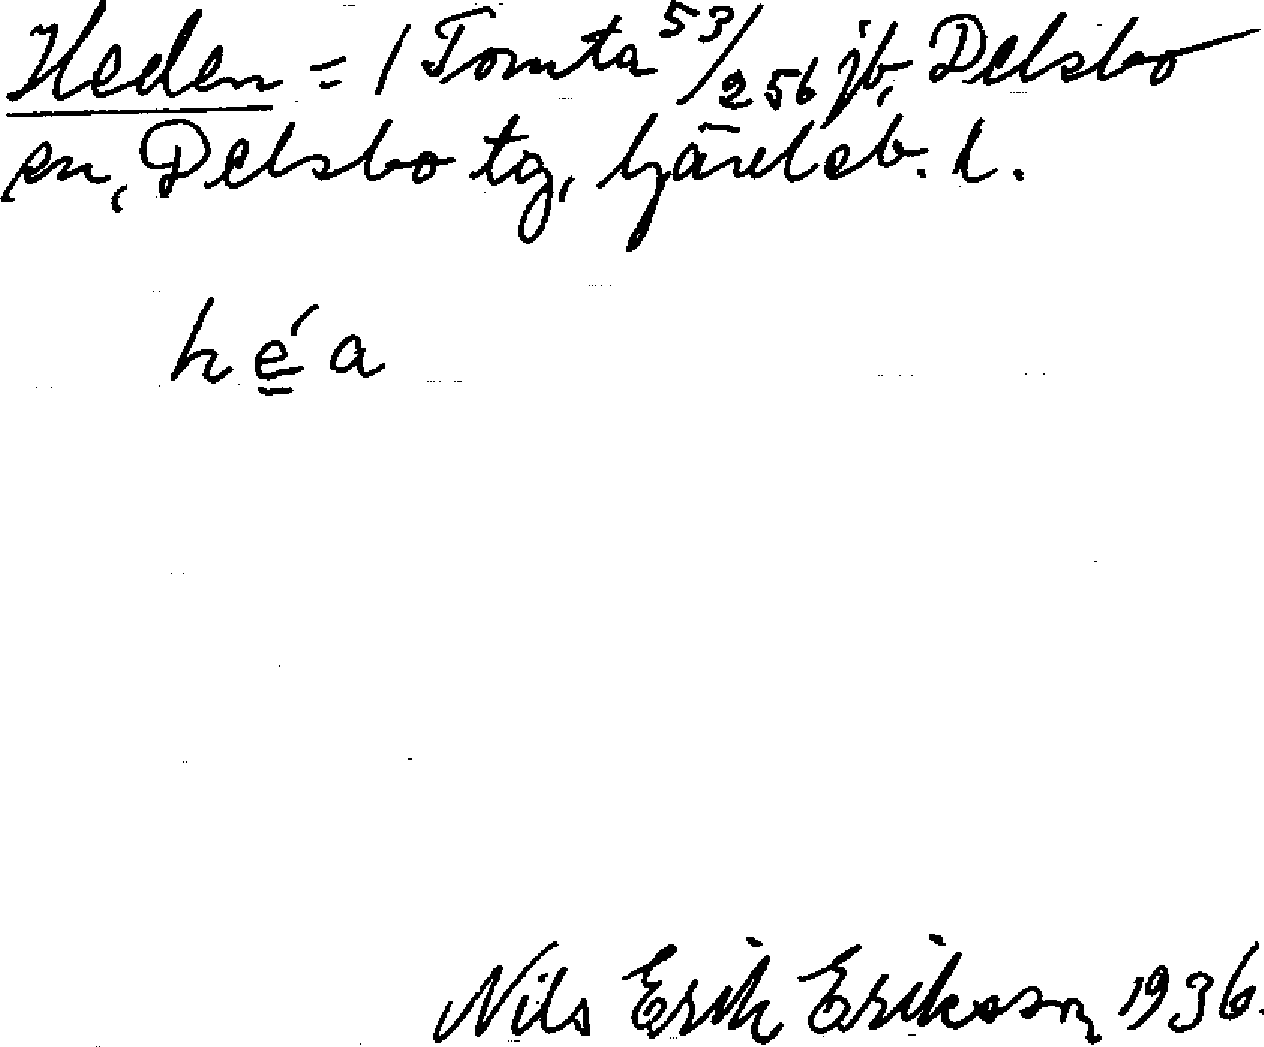 Heden = 1 Tomta 53/256 jb, Delsbo
sn, Delsbo tg, Gävleb. l.
hé̳a
Nils Erik Eriksson 1936.